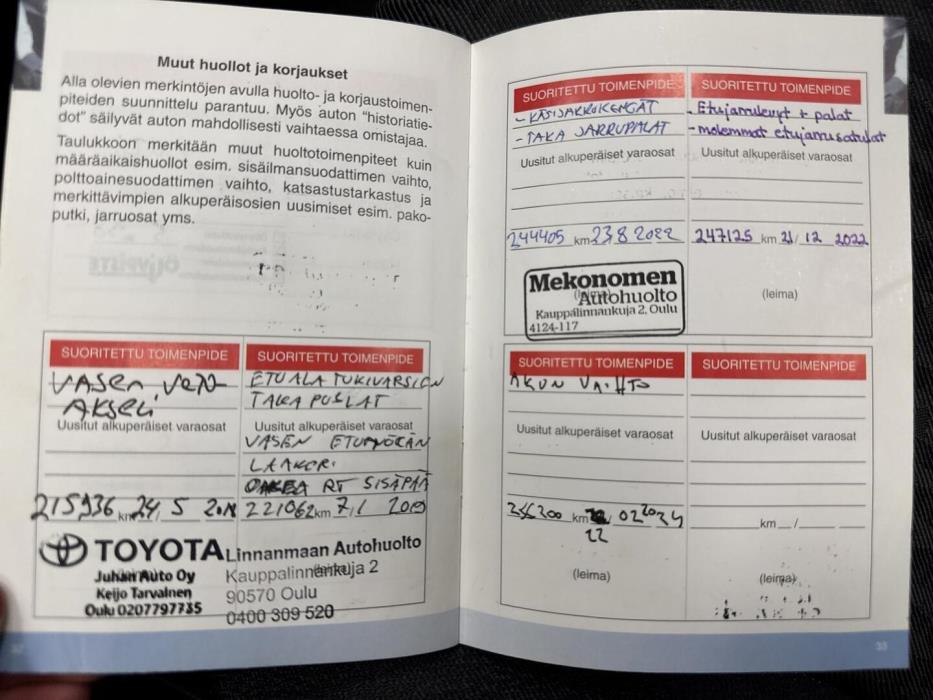 Muut huollot ja korjaukset
Alla olevien merkintöjen avulla huolto- ja korjaustoimen-
piteiden suunnittelu parantuu. Myös auton "historiatie-
dot" säilyvät auton mahdollisesti vaihtaessa omistajaa.
Taulukkoon merkitään muut huoltotoimenpiteet kuin
määräaikaishuollot esim. sisäilmansuodattimen vaihto,
polttoainesuodattimen vaihto, katsastustarkastus ja
merkittävimpien alkuperäisosien uusimiset esim. pako-
putki, jarruosat yms.
SUORITETTU TOIMENPIDE
VASEN VETO
AKSELI
Uusitut alkuperäiset varaosat
215936 km 24/ 5 2018
TOYOTA
Juhan Auto Oy
Keijo Tarvainen
Oulu 0207797735
SUORITETTU TOIMENPIDE
ETUALA TUKIVARSIEN
TAKA PUSLAT
Uusitut alkuperäiset varaosat
VASEN ETUPYÖRÄN
LAAKERI
OIKEA RT SISÄPÄÄ
221062 km 7/1 2019
Linnanmaan Autohuolto
Kauppalinnankuja 2
90570 Oulu
0400 309 520
32
SUORITETTU TOIMENPIDE
- KÄSIJARRUKENGÄT
- TAKA JARRUPALAT
Uusitut alkuperäiset varaosat
244405 km 23 8 2022
(leima)
Mekonomen
Autohuolto
Kauppalinnankuja 2, Oulu
4124-117
SUORITETTU TOIMENPIDE
- Etujarrulevyt + palat
- molemmat etujarrusatulat
Uusitut alkuperäiset varaosat
247125 km 21/ 12 2022
(leima)
SUORITETTU TOIMENPIDE
AKUN VAIHTO
Uusitut alkuperäiset varaosat
km / 02 2024
22
(leima)
SUORITETTU TOIMENPIDE
Uusitut alkuperäiset varaosat
km /
(leima)
33